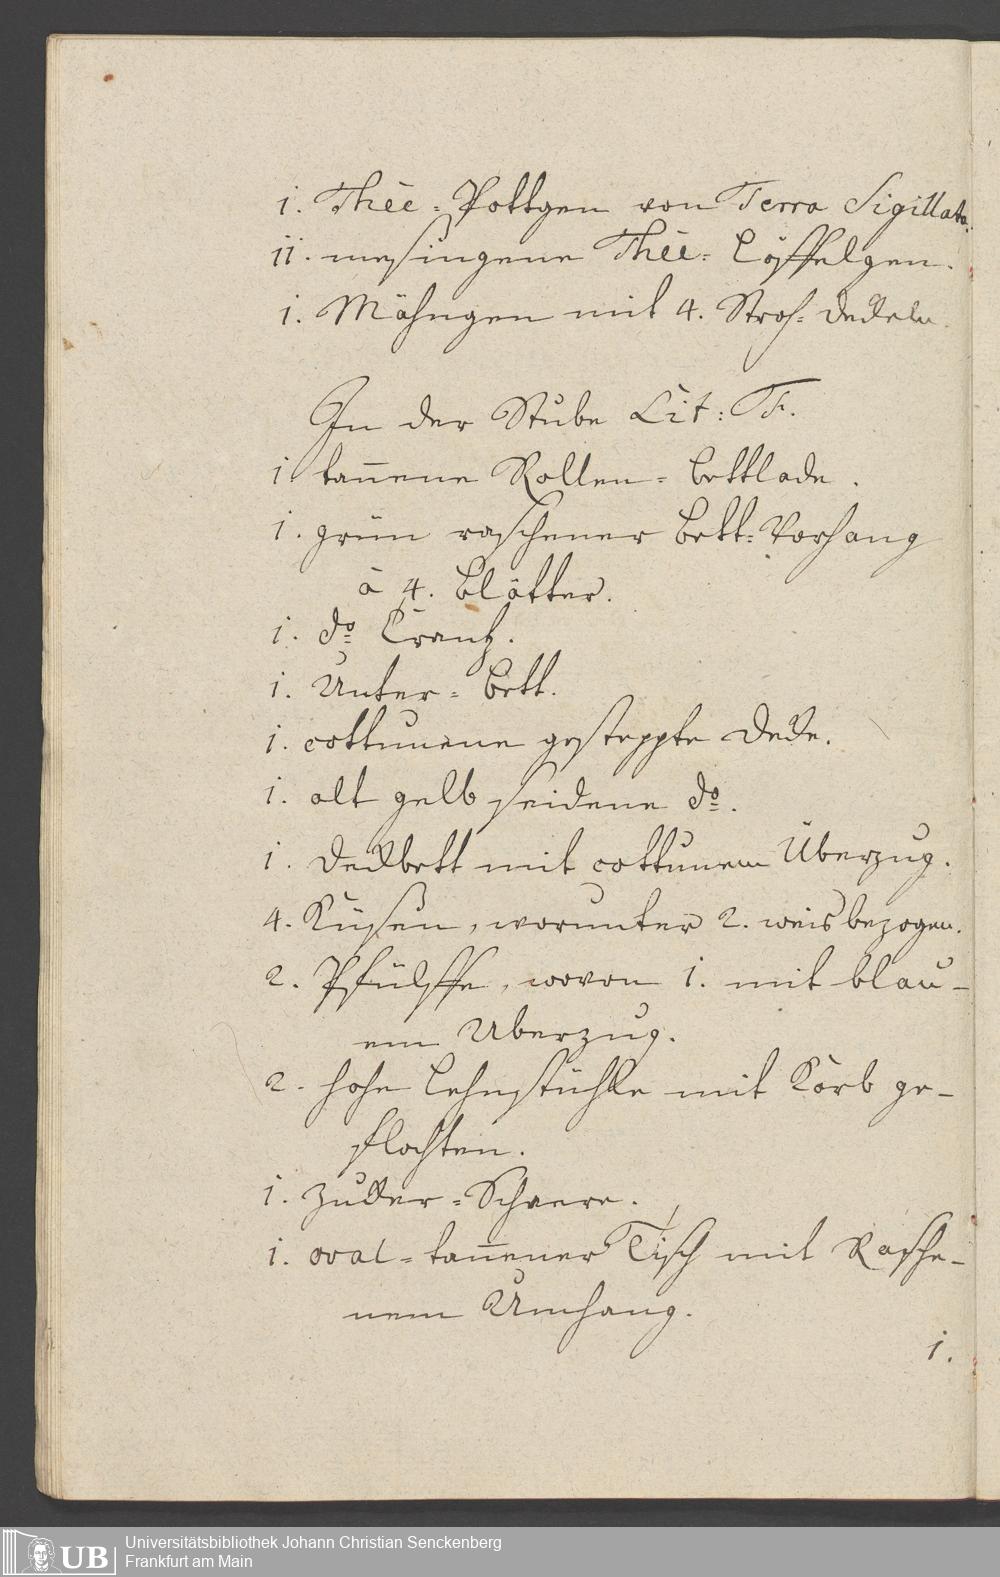 1. Thèe-Pottgen von Terra Sigillata.
11. mesingene Thèe-Löffelgen.
1. Mähngen mit 4. Stroh-Deckeln
In der Stube Lit: Fr.
1 tan̄ene Rollen-Bettlade.
1. grün raschener Bett-Vorhang
à 4. Blätter.
1. do Crantz.
1. Unter-Bett.
1. cottunene gesteppte Decke.
1. alt gelb seidene do.
1. Deckbett mit cottunem Überzug.
4. Küßen, worunter 2. weis bezogen.
2. Pfülffe, wovon 1. mit blau-
em Uberzug.
2. hohe Lehnstühle mit Korb ge-
flochten.
1. Zucker-Scheere.
1. oval-tan̄ener Tisch mit Rasche-
nem Umhang.
1.
UB
Universitätsbibliothek Johann Christian Senckenberg
Frankfurt am Main